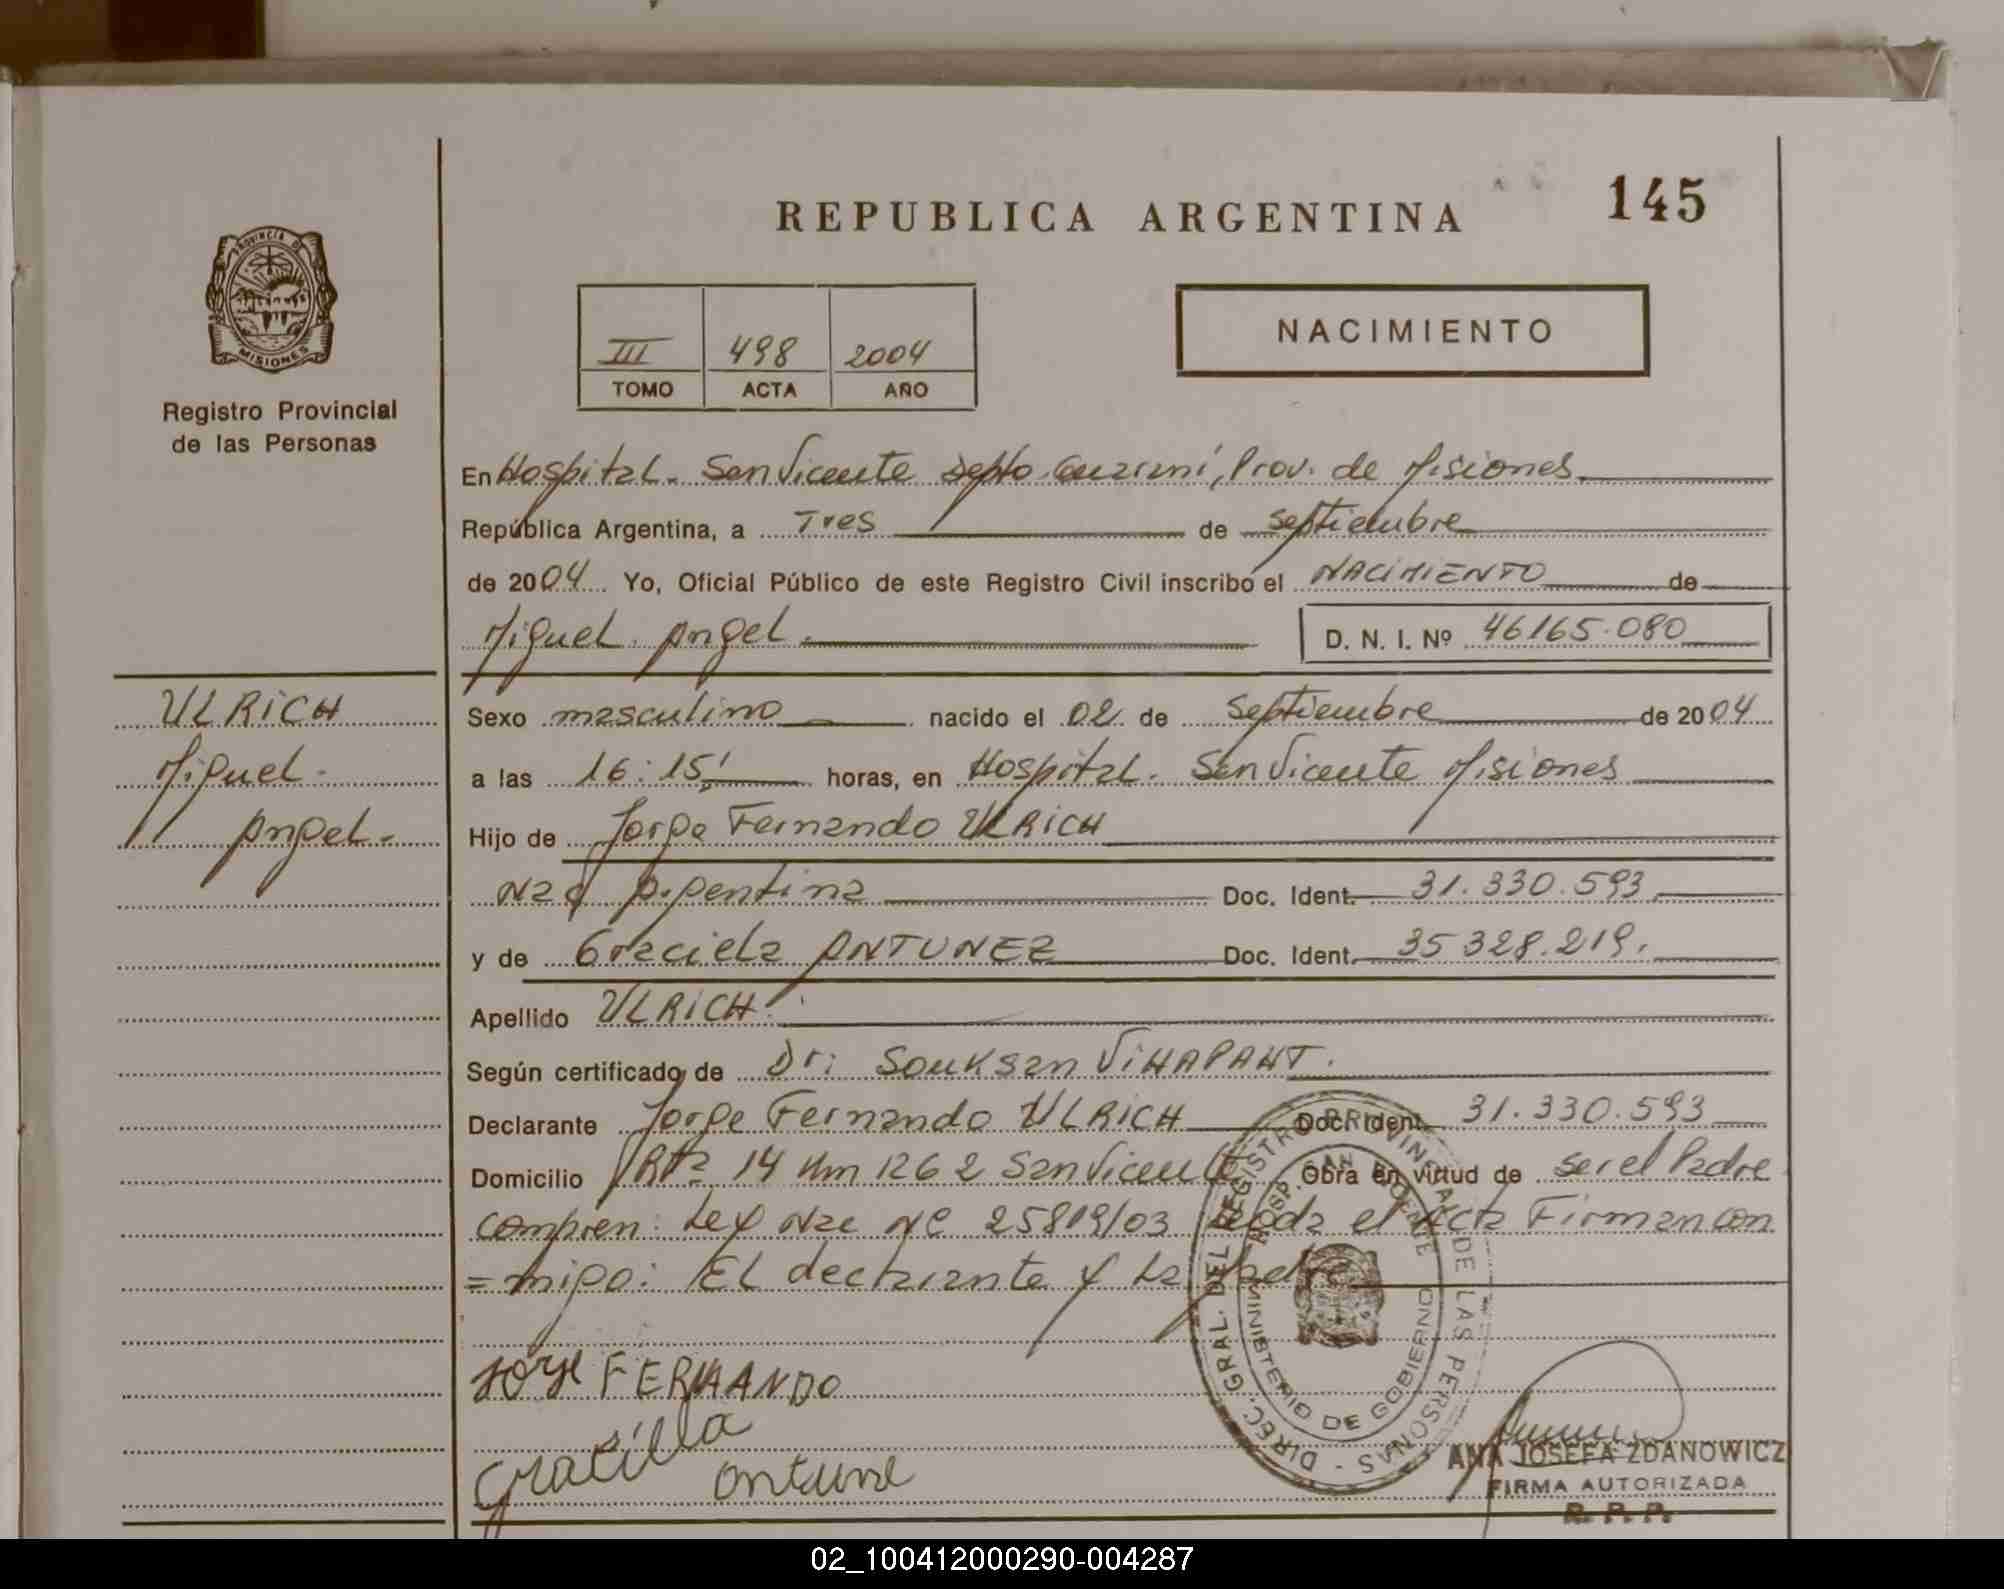 REPUBLICA ARGENTINA
145
PROVINCIA DE
MISIONES
Registro Provincial
de las Personas
III 498 2004
TOMO ACTA AÑO
NACIMIENTO
En Hospital. San Vicente Depto. Guaraní, Prov. de Misiones
República Argentina, a Tres de Septiembre
de 2004 Yo, Oficial Público de este Registro Civil inscribo el NACIMIENTO de
Miguel Angel. D. N. I. Nº 46165.080
ULRICH
Miguel.
Angel.
Sexo masculino nacido el 02 de Septiembre de 2004
a las 16:15' horas, en Hospital. San Vicente Misiones
Hijo de Jorge Fernando ULRICH
Nac Argentina Doc. Ident. 31.330.593
y de Graciela ANTUNEZ Doc. Ident. 35 328.219.
Apellido ULRICH.
Según certificado de Dr: Souksan VIHAPAHT.
Declarante Jorge Fernando ULRICH Doc. Ident. 31.330.593
Domicilio Rta 14 Km 1262 San Vicente Obra en virtud de ser el Padre
compren: Ley Nac Nº 25819/03 el Acta Firman con
=migo: El declarante y La Madre
Jorge FERNANDO
Gracilla
Ontune
DIREC. GRAL. DEL REGISTRO PROVINCIAL DE LAS PERSONAS -
HOSP. SAN VICENTE
MINISTERIO DE GOBIERNO
ANA JOSEFA ZDANOWICZ
FIRMA AUTORIZADA
R. P. P.
02_100412000290-004287